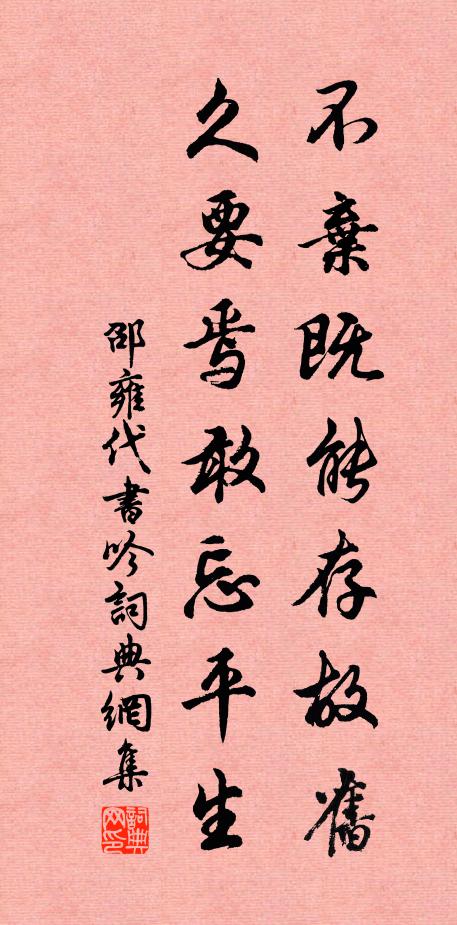 不棄既能存故舊
久要焉敢忘平生
邵雍代書吟詞典網集
詞典网印